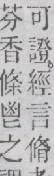 可證。經言脩者
芬香條鬯之謂